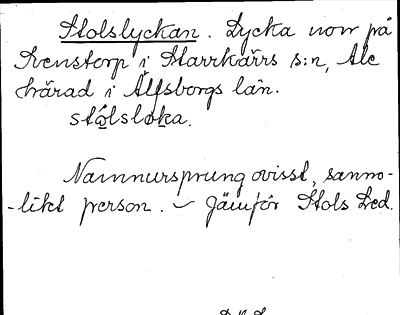 Stolslyckan. Lycka norr på
Svenstorp i Starrkärrs s:n, Ale
härad i Älfsborgs län.
stólsloka.
Namnursprung ovisst, sanno-
-likt person. – Jämför Stols Led.